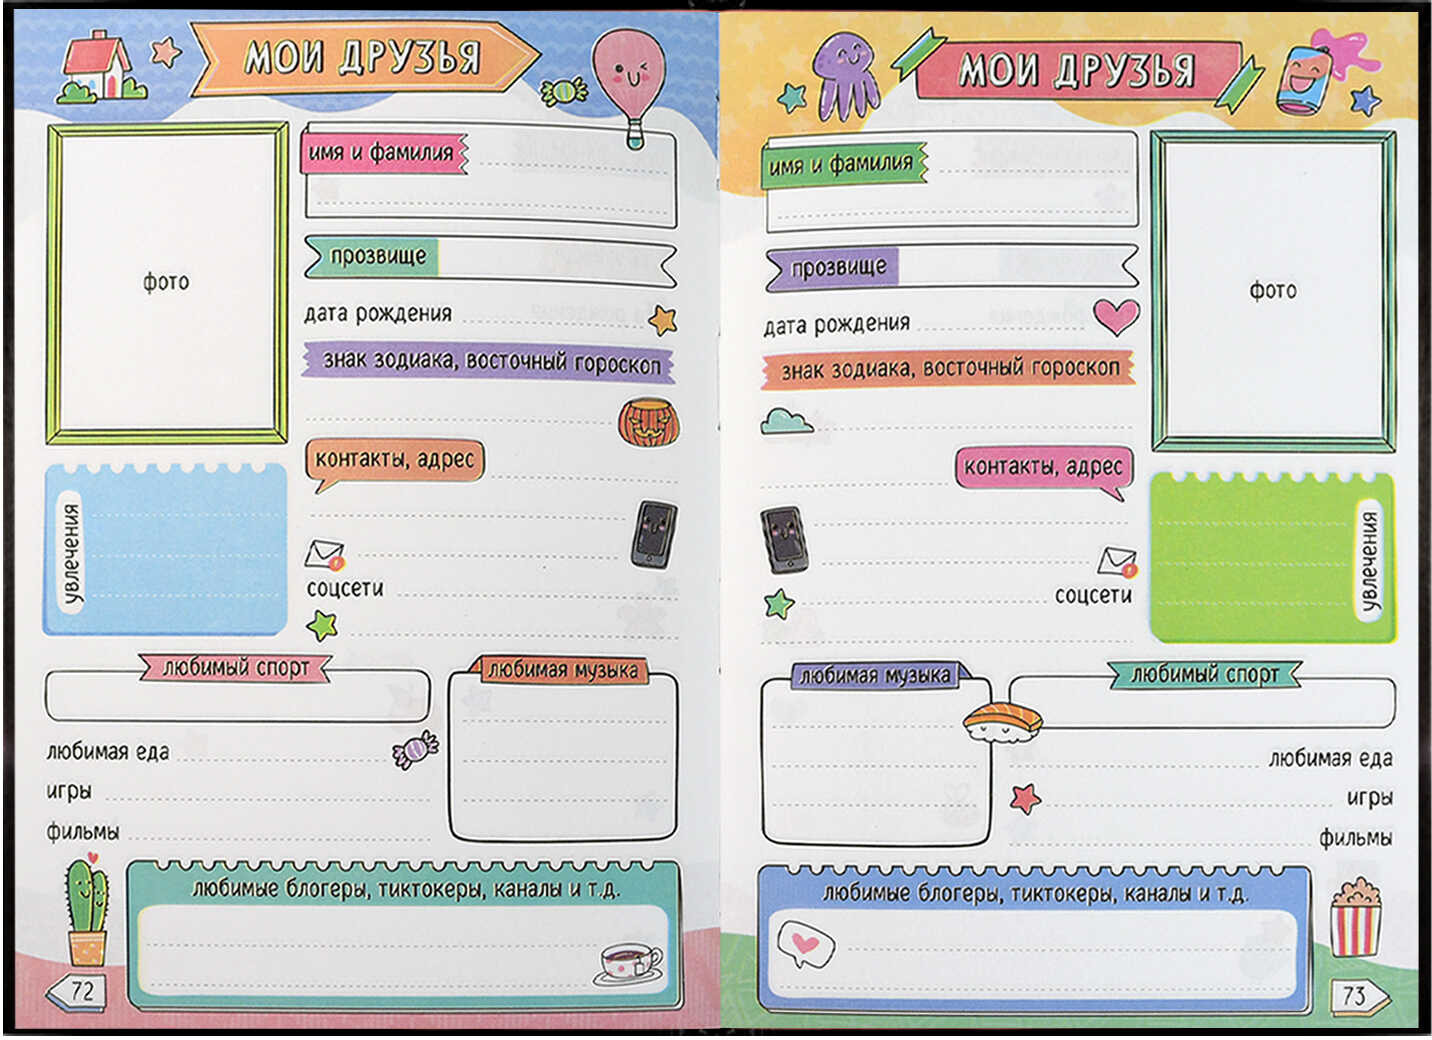 МОИ ДРУЗЬЯ
имя и фамилия
прозвище
фото
дата рождения
знак зодиака, восточный гороскоп
контакты, адрес
увлечения
соцсети
любимый спорт
любимая музыка
любимая еда
игры
фильмы
любимые блогеры, тиктокеры, каналы и т.д.
72
МОИ ДРУЗЬЯ
имя и фамилия
прозвище
фото
дата рождения
знак зодиака, восточный гороскоп
контакты, адрес
увлечения
соцсети
любимая музыка
любимый спорт
любимая еда
игры
фильмы
любимые блогеры, тиктокеры, каналы и т.д.
73